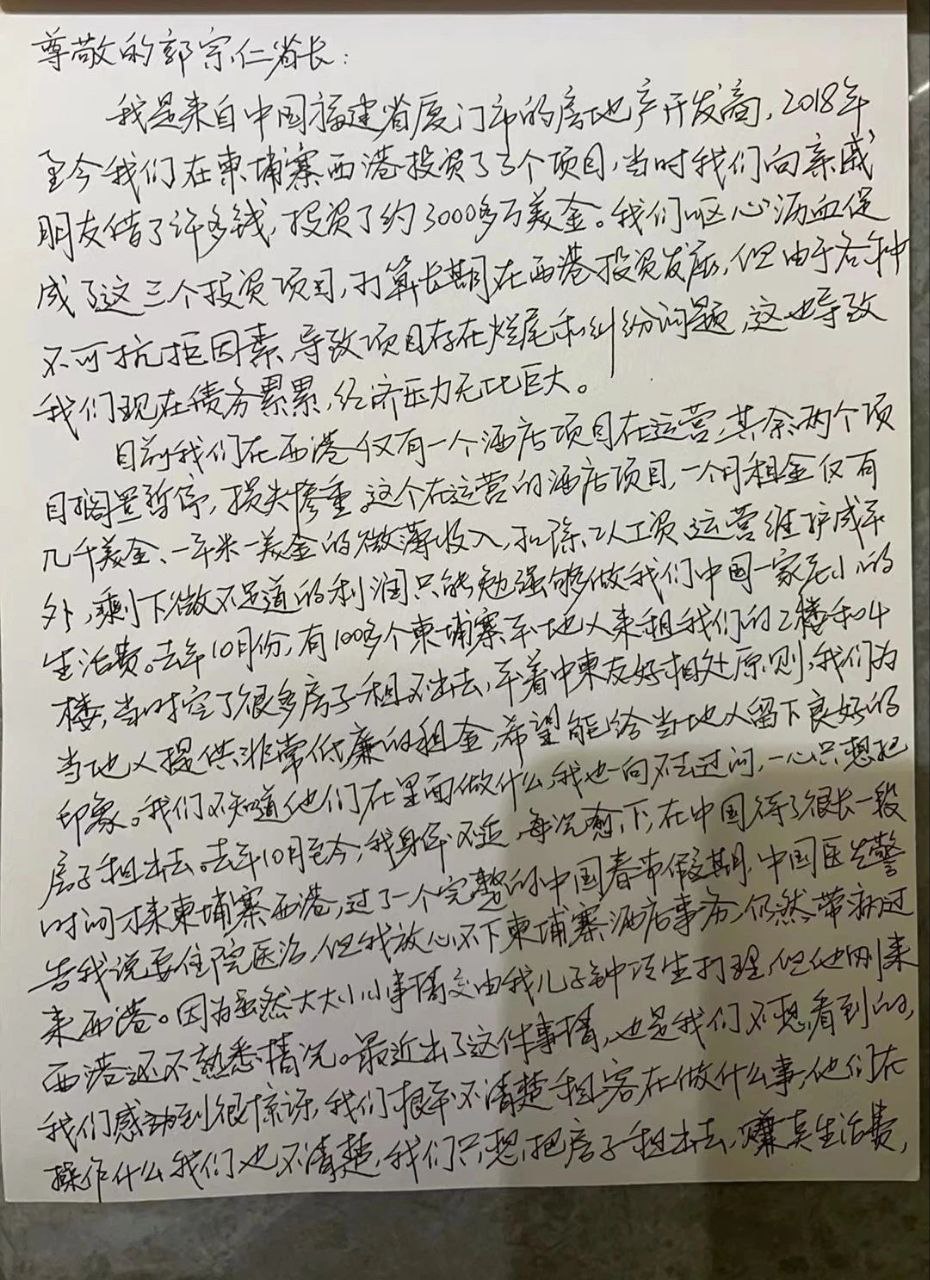 尊敬的郭宗仁省长:
我是来自中国福建省厦门市的房地产开发商,2018年
至今我们在柬埔寨西港投资了3个项目,当时我们向亲戚
朋友借了许多钱,投资了约3000多万美金。我们呕心沥血促
成了这三个投资项目,打算长期在西港投资发展,但由于各种
不可抗拒因素,导致项目存在烂尾和纠纷问题,这也导致
我们现在债务累累,经济压力无比巨大。
目前我们在西港仅有一个酒店项目在运营,其余两个项
目搁置暂停,损失惨重。这个在运营的酒店项目,一个月租金仅有
几千美金、一平米一美金的微薄收入,扣除人工资、运营维护成本
外,剩下微不足道的利润只能勉强够做我们中国一家老小的
生活费。去年10月份,有100多个柬埔寨本地人来租我们的2楼和4
楼,当时空了很多房子租不出去,本着中柬友好相处原则,我们为
当地人提供非常低廉的租金,希望能给当地人留下良好的
印象。我们不知道他们在里面做什么,我也一向不去过问,一心只想把
房子租出去。去年10月至今,我身体不适,每况愈下,在中国待了很长一段
时间才来柬埔寨西港,过了一个完整的中国春节假期,中国医生警
告我说要住院医治,但我放心不下柬埔寨酒店事务,仍然带病过
来西港。因为虽然大大小小事情交由我儿子钟 生打理,但他刚来
西港还不熟悉情况。最近出了这件事情,也是我们不想看到的,
我们感到很惊讶,我们根本不清楚租客在做什么事,他们在
操作什么我们也不清楚,我们只想把房子租出去,赚其生活费,